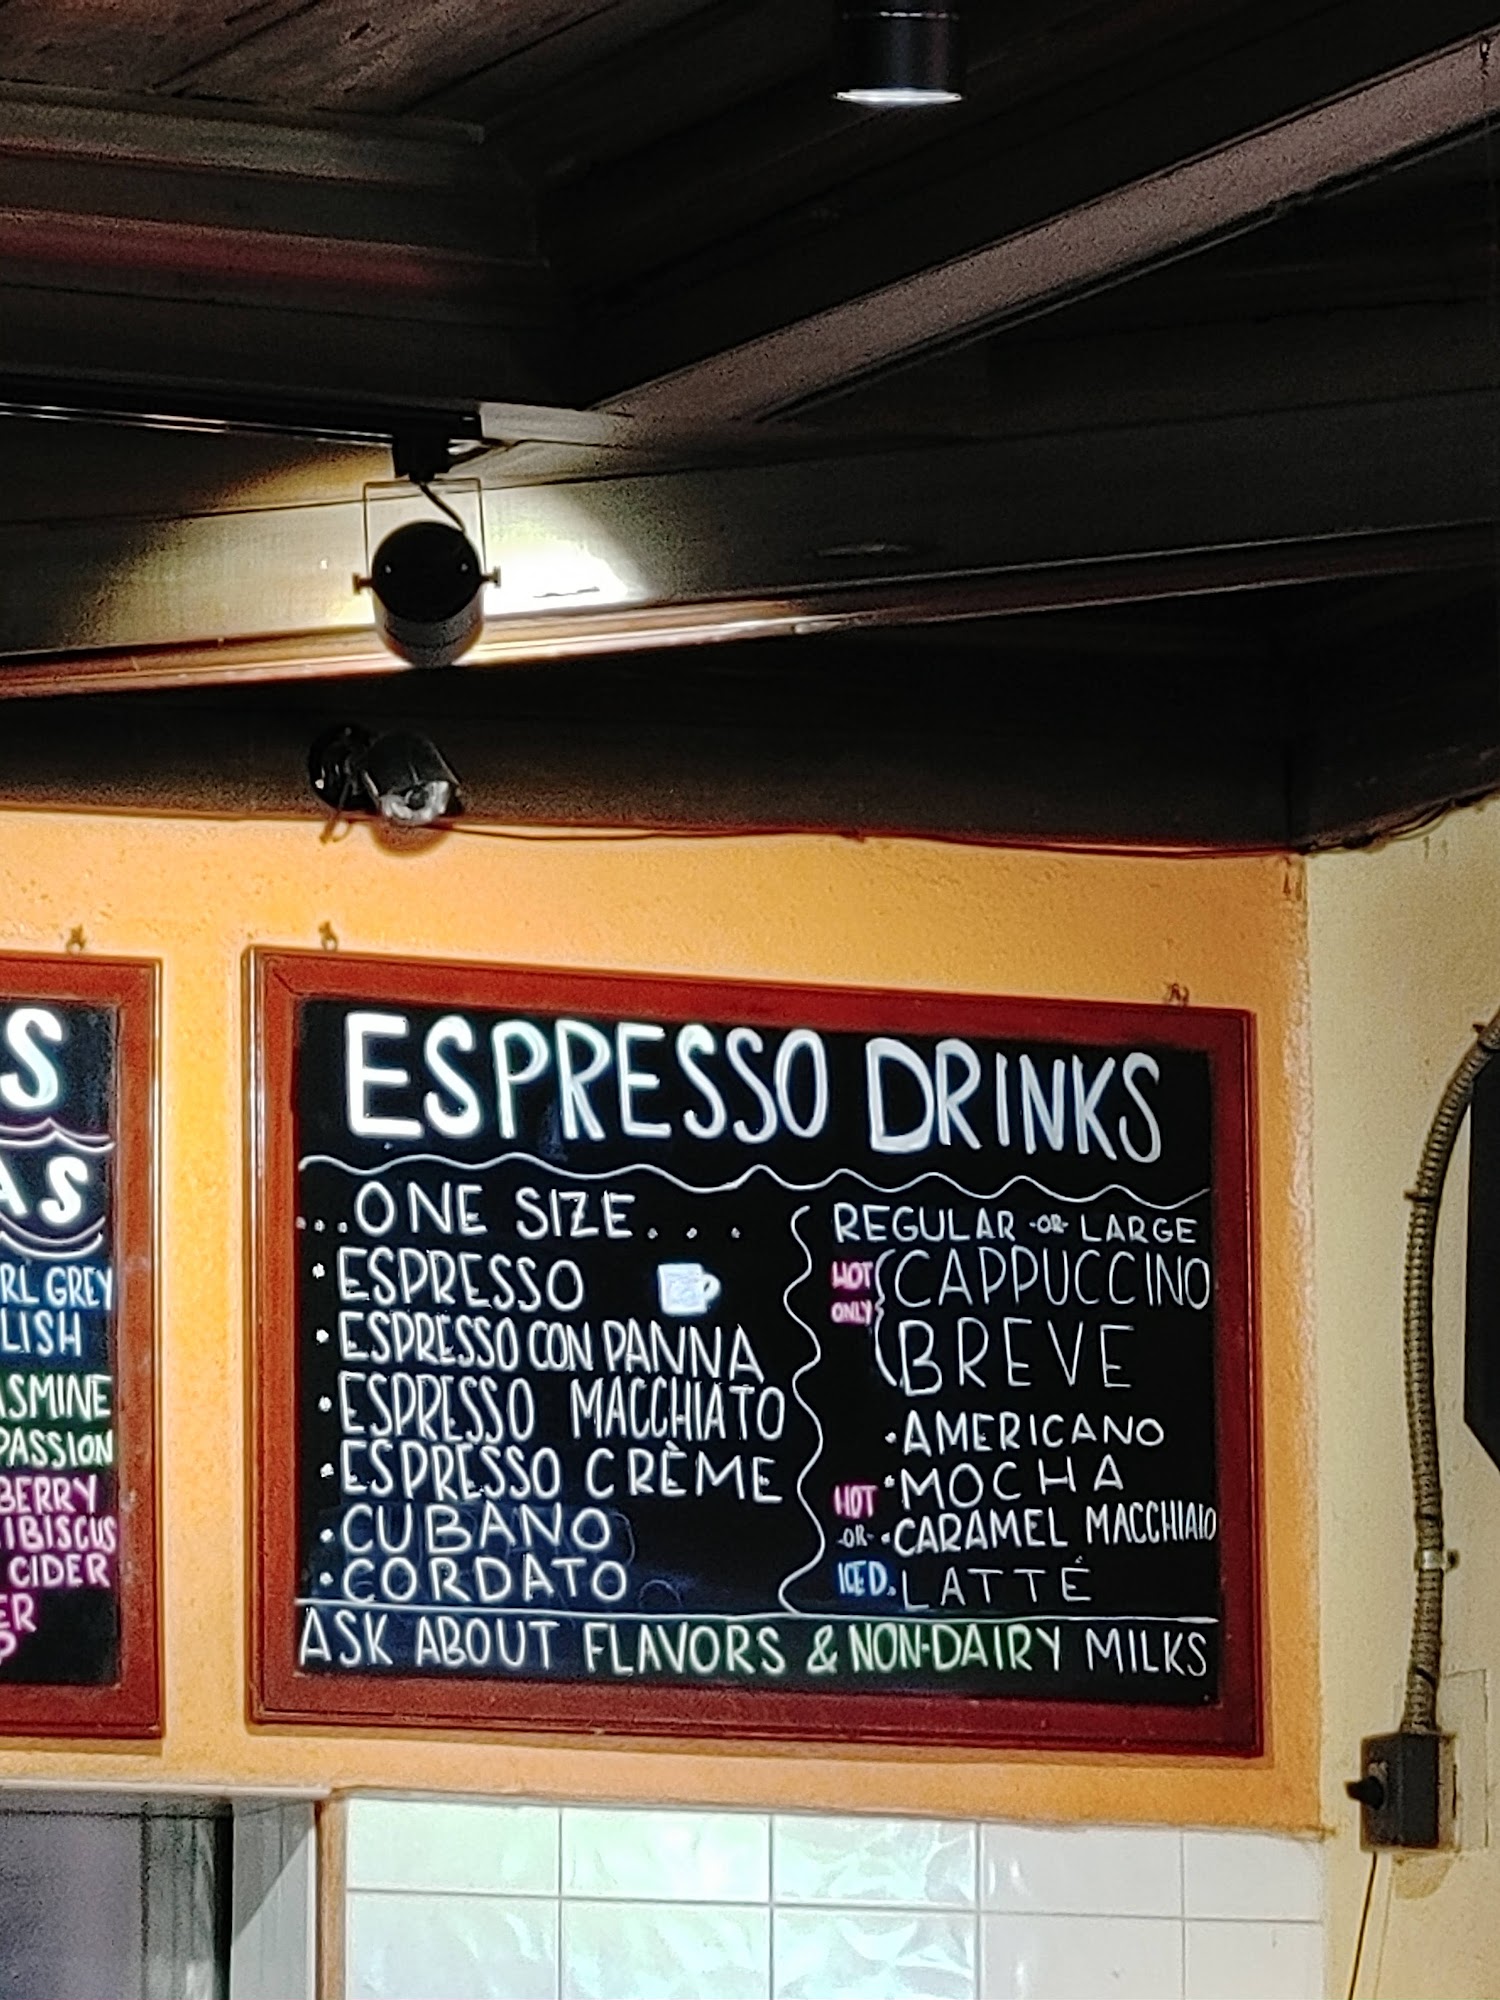 S
AS
RL GREY
LISH
ASMINE
PASSION
BERRY
IBISCUS
CIDER
ER
ESPRESSO DRINKS
...ONE SIZE...
• ESPRESSO
• ESPRESSO CON PANNA
• ESPRESSO MACCHIATO
• ESPRESSO CRÈME
• CUBANO
• CORDATO
REGULAR -OR- LARGE
HOT ONLY
CAPPUCCINO
BREVE
• AMERICANO
• MOCHA
HOT
-OR- • CARAMEL MACCHIATO
ICED • LATTÉ
ASK ABOUT FLAVORS & NON-DAIRY MILKS